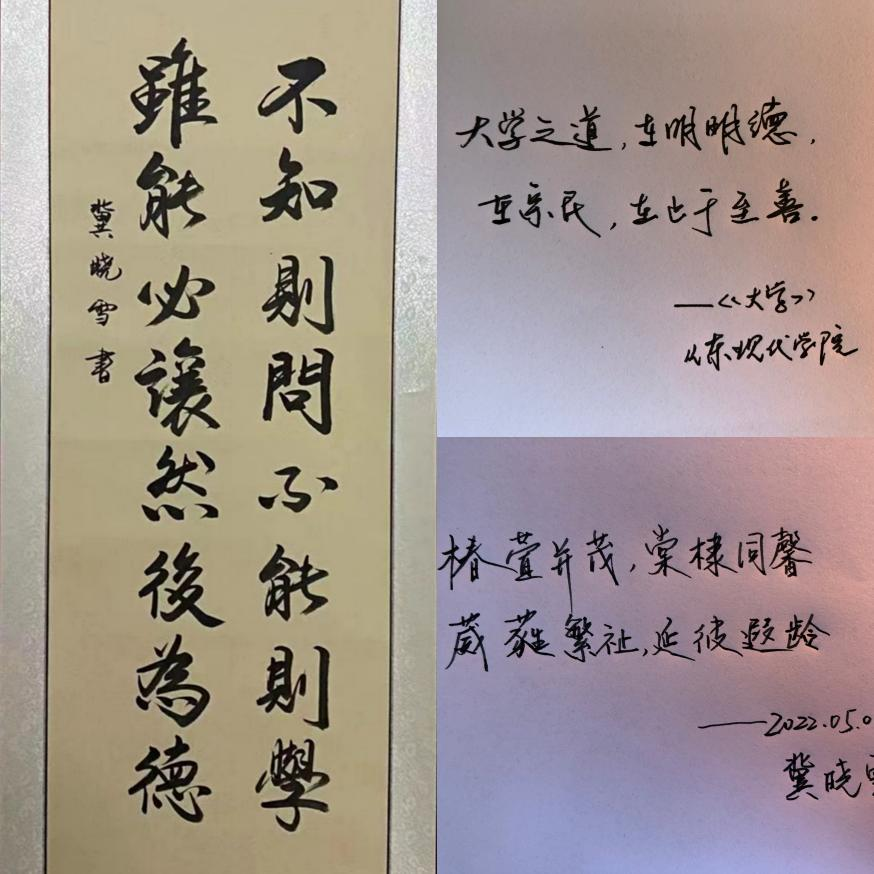 不知則問不能則學
雖能必讓然後為德
冀晓雪書
大学之道,在明明德,
在亲民,在止于至善.
——《大学》
山东现代学院
椿萱并茂,棠棣同馨
葳蕤繁祉,延彼遐龄
——2022.05.0
冀晓